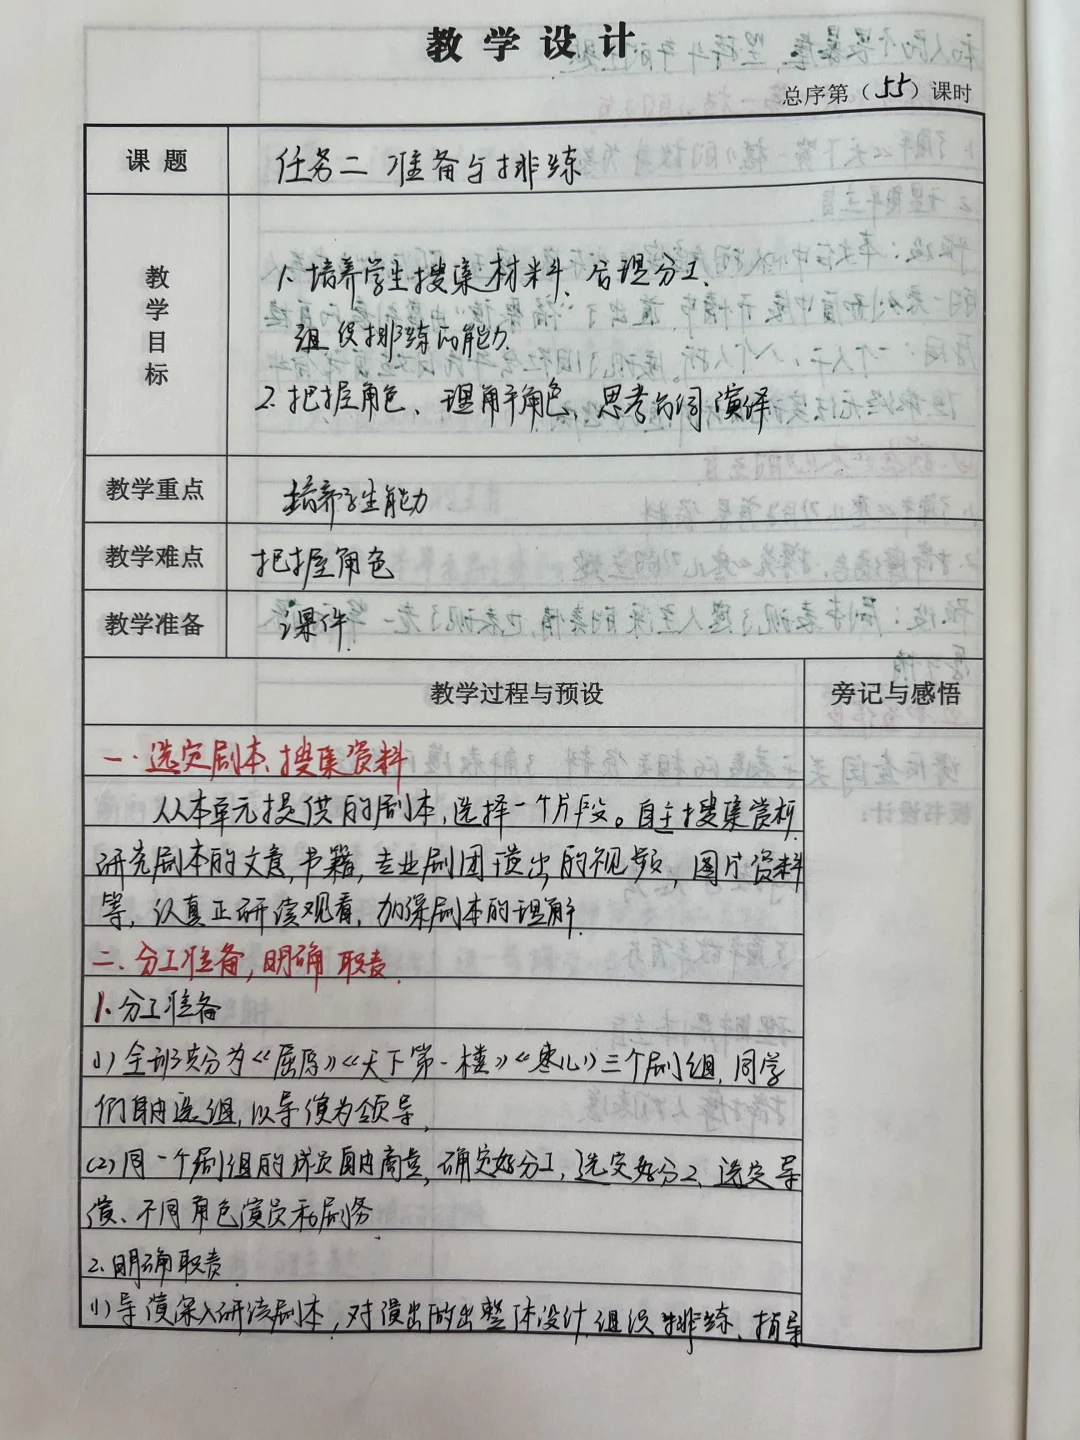 教学设计
总序第（55）课时
课题 任务二 准备与排练
教学目标
1. 培养学生搜集材料、合理分工、
组织排练的能力.
2. 把握角色、理解角色、思考如何演绎
教学重点 培养学生能力
教学难点 把握角色
教学准备 课件.
教学过程与预设 旁记与感悟
一. 选定剧本、搜集资料
从本单元提供的剧本,选择一个片段。自主搜集赏析
研究剧本的文章,书籍,专业剧团演出的视频,图片资料
等,认真正研读观看,加深剧本的理解.
二、分工准备,明确职责.
1. 分工准备
(1) 全班分为《屈原》《天下第一楼》《枣儿》三个剧组,同学
们自由选组,以导演为领导,
(2) 同一个剧组的成员自由商量,确定好分工,选定好分工、选定导
演、不同角色演员和剧务.
2. 明确职责.
(1) 导演深入研读剧本,对演出做出整体设计,组织排练、指导